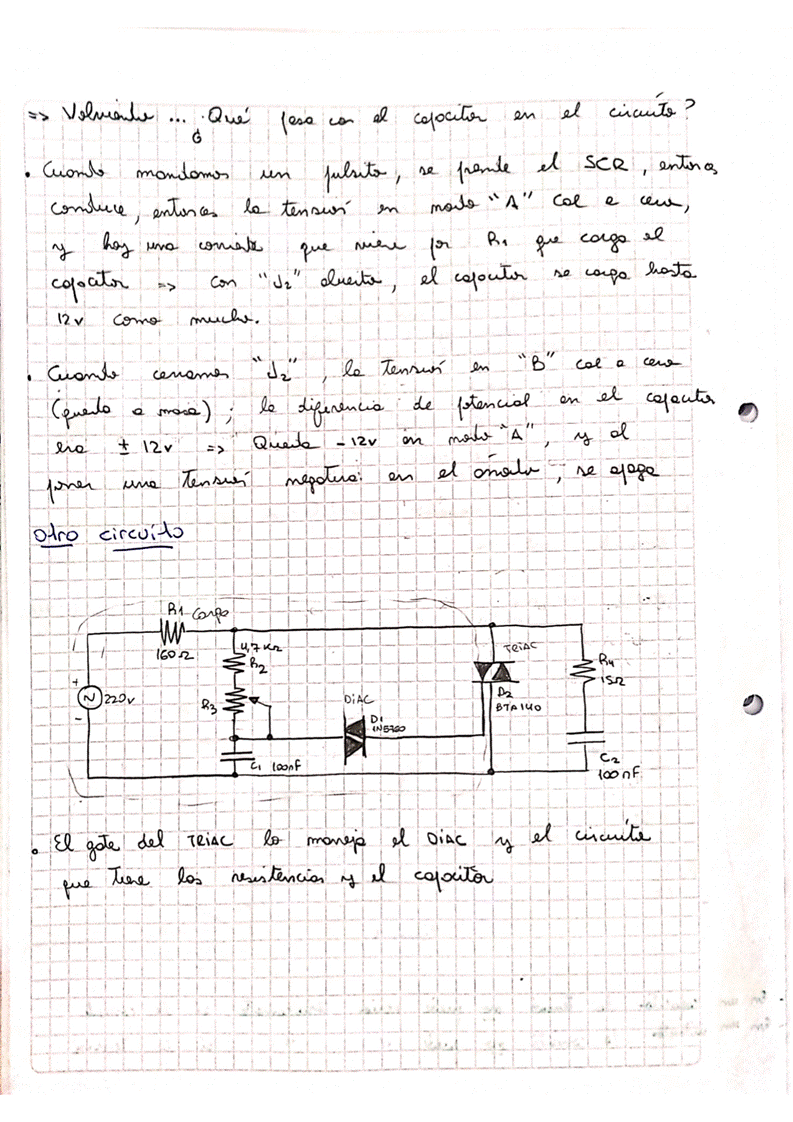 => Volviendo ... ¿Qué pasa con el capacitor en el circuito?
• Cuando mandamos un pulsito, se prende el SCR, entonces
conduce, entonces la tensión en nodo "A" cae a cero,
y hay una corriente que viene por R1 que carga el
capacitor => Con "J2" abierto, el capacitor se carga hasta
12v como mucho.
• Cuando cerramos "J2", la tensión en "B" cae a cero
(queda a masa); la diferencia de potencial en el capacitor
era ± 12v => Queda -12v en nodo "A", y al
poner una tensión negativa en el ánodo, se apaga
Otro circuito
R1 Carga
160Ω
4,7KΩ
R2
TRIAC
R4
15Ω
+
220v
-
R3
DIAC
D1
D2
BTA140
C1 100nF
C2
100nF
• El gate del TRIAC lo maneja el DIAC y el circuito
que tiene las resistencias y el capacitor